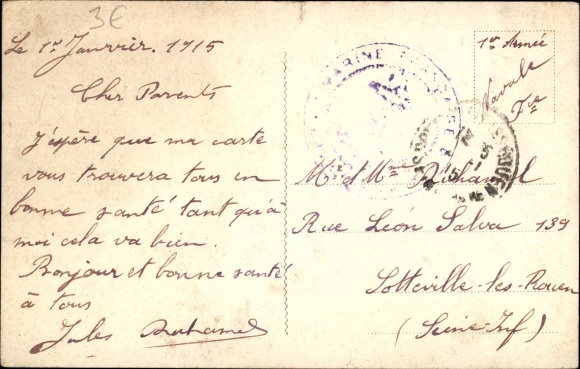 3€
Le 1er Janvier. 1915
Cher Parents
J'espère que ma carte
vous trouvera tous en
bonne santé tant qu'à
moi cela va bien.
Bonjour et bonne santé
à tous
Jules Duhamel
1ère Armée
Navale
Fse
MARINE
ROUEN
M. et Mme Duhamel
Rue Léon Salva 139
Sotteville-les-Rouen
(Seine-Inf)